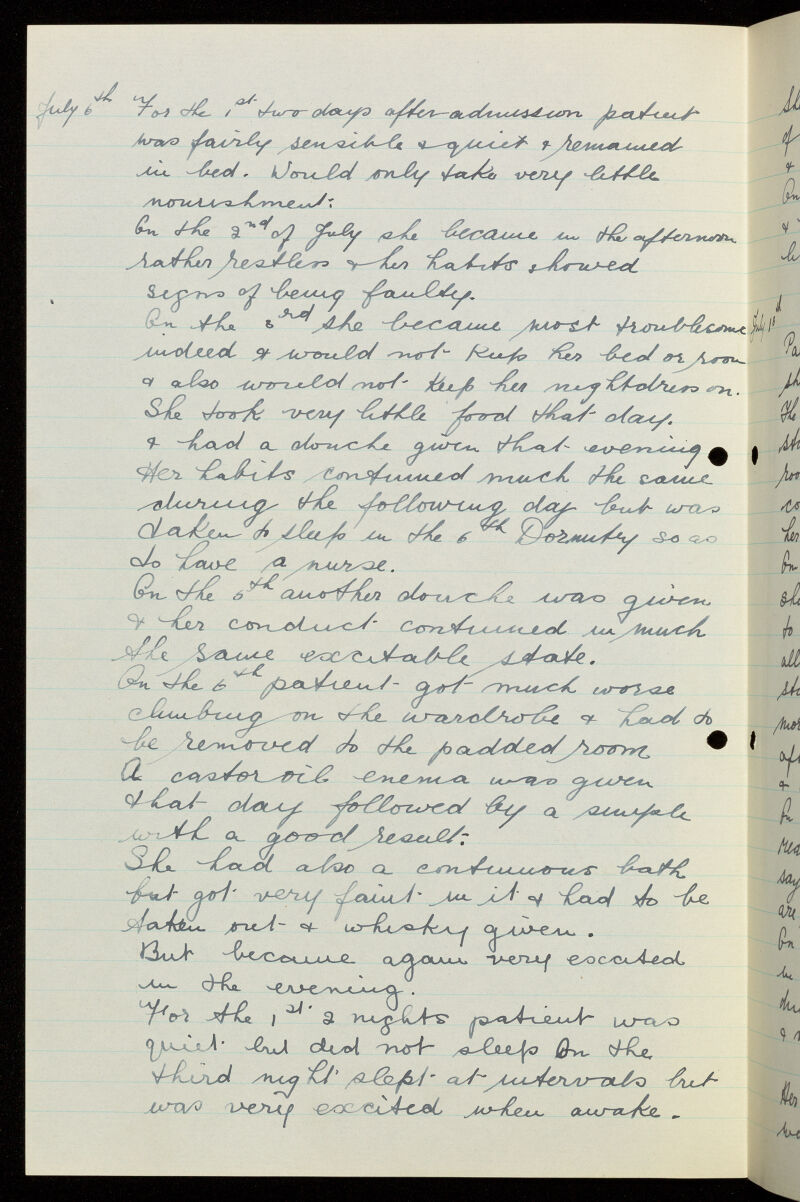 July 6th For the 1st two days after admission patient
was fairly sensible & quiet & remained
in bed. Would only take very little
nourishment:
On the 2nd of July she became in the afternoon
rather restless & her habits showed
signs of being faulty.
On the 3rd she became most troublesome
indeed & would not keep her bed or room
& also would not keep her nightdress on.
She took very little food that day.
& had a douche given that evening
Her habits continued much the same
during the following day but was
taken to sleep in the 6th Dormitry so as
to have a nurse.
On the 5th another douche was given
& her conduct continued in much
the same excitable state.
On the 6th patient got much worse
climbing on the wardrobe & had to
be removed to the padded room
A castor oil enema was given
that day followed by a simple
with a good result:
She had also a continuous bath
but got very faint in it & had to be
taken out & whisky given.
But became again very excited
in the evening.
For the 1st 2 nights patient was
quiet but did not sleep On the
third night slept at intervals but
was very excited when awake.